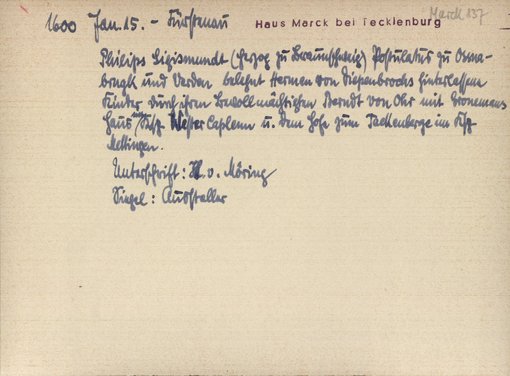 1600 Jan. 15. - Fürstenau Haus Marck bei Tecklenburg Marck 137
Philipp Sigismundt (Herzog zu Braunschweig) Postulatus zu Osna-
brugk und Verden belehnt Hermen von Diepenbrochs hinterlassene
Kinder durch ihren Bevollmächtigten Berndt von Ohr mit Gronemans
Haus im Ksp. Wester Capleln u. dem Hofe zum Tecklenberge im Ksp.
Mettingen.
Unterschrift: H. v. Möring
Siegel: Aussteller